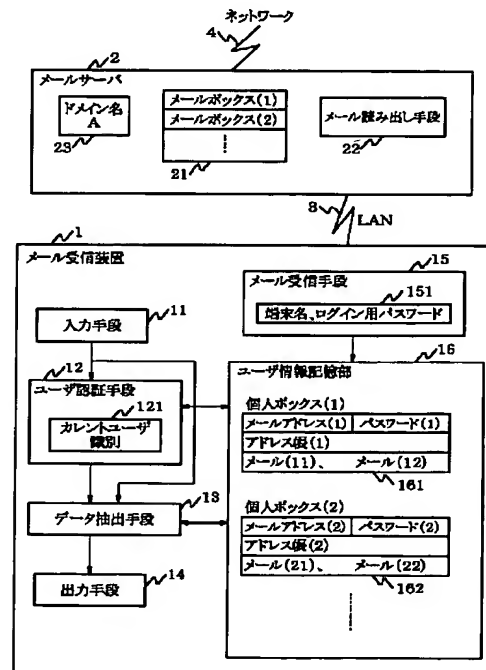 ネットワーク
4
2
メールサーバ
ドメイン名
A
23
メールボックス(1)
メールボックス(2)
21
メール読み出し手段
22
3
LAN
1
メール受信装置
15
メール受信手段
151
端末名、ログイン用パスワード
11
入力手段
12
ユーザ認証手段
121
カレントユーザ
識別
16
ユーザ情報記憶部
個人ボックス(1)
メールアドレス(1) パスワード(1)
アドレス帳(1)
メール(11)、 メール(12)
161
13
データ抽出手段
個人ボックス(2)
メールアドレス(2) パスワード(2)
アドレス帳(2)
メール(21)、 メール(22)
162
14
出力手段